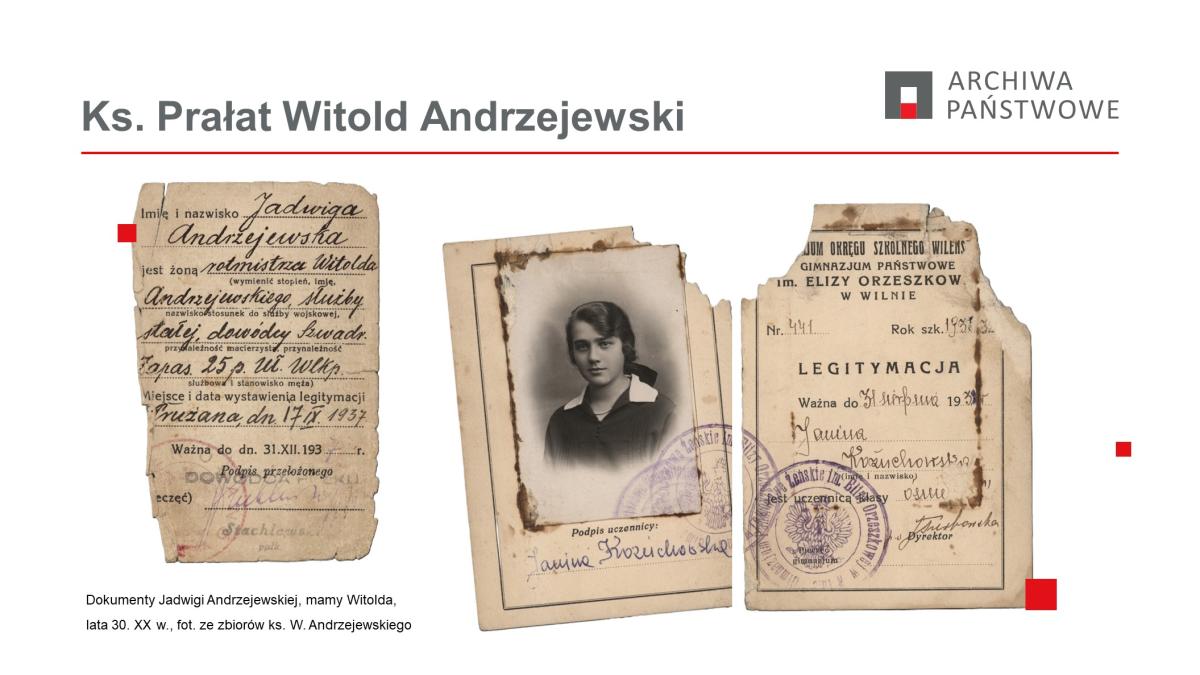 Ks. Prałat Witold Andrzejewski
ARCHIWA
PAŃSTWOWE
Imię i nazwisko Jadwiga
Andrzejewska
jest żoną rotmistrza Witolda
(wymienić stopień, imię,
Andrzejewskiego, służby
nazwisko stosunek do służby wojskowej,
stałej, dowódcy Szwadr.
przynależność macierzysta, przynależność
Zapas. 25 p. Uł. Wlkp.
służbowa i stanowisko męża)
Miejsce i data wystawienia legitymacji
Prużana, dn. 17 IX. 1937
Ważna do dn. 31.XII.193 r.
Podpis przełożonego
DOWÓDCA PUŁKU
eczęć)
ppłk
Podpis uczennicy:
Janina Kożuchowska
JUM OKRĘGU SZKOLNEGO WILEŃS
GIMNAZJUM PAŃSTWOWE
im. ELIZY ORZESZKOW
W WILNIE
Nr. 441 Rok szk. 193
LEGITYMACJA
Ważna do 31 sierpnia 193
Janina
Kożuchowska
(imię i nazwisko)
jest uczennicą klasy ósmej
Dyrektor
Pieczęć
gimnazjum
Dokumenty Jadwigi Andrzejewskiej, mamy Witolda,
lata 30. XX w., fot. ze zbiorów ks. W. Andrzejewskiego